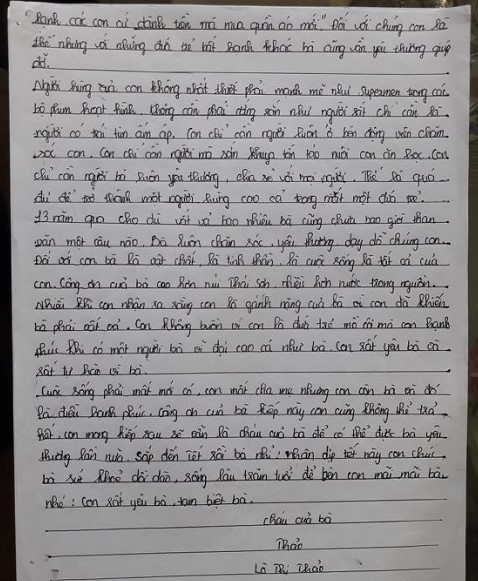 dành các con cứ dành tiền mà mua quần áo mới." Đối với chúng con là
thế nhưng với những đứa trẻ bất hạnh khác bà cũng vẫn yêu thương giúp
đỡ.
Người hùng của con không nhất thiết phải mạnh mẽ như superman trong các
bộ phim hoạt hình. Không cần phải cứng rắn như người sắt chỉ cần là
người có trái tim ấm áp. Con chỉ cần người luôn ở bên động viên chăm
sóc con. Con chỉ cần người mà sớn khuya tần tảo nuôi con ăn học. Con
chỉ cần người bà luôn yêu thương, chia sẻ với mọi người. Thế là quá
đủ để trở thành một người hùng cao cả trong mắt một đứa trẻ.
13 năm qua cho dù vất vả bao nhiêu bà cũng chưa bao giờ than
vãn một câu nào. Bà luôn chăm sóc, yêu thương, dạy dỗ chúng con.
Đối với con bà là vật chất, là tinh thần, là cuộc sống là tất cả của
con. Công ơn của bà cao hơn núi Thái Sơn, nhiều hơn nước trong nguồn.
Nhiều khi con nhận ra rằng con là gánh nặng của bà vì con đã khiến
bà phải vất vả. Con không buồn vì con là đứa trẻ mồ côi mà con hạnh
phúc khi có một người bà vĩ đại cao cả như bà. Con rất yêu bà và
rất tự hào vì bà.
Cuộc sống phải mất mới có, con mất cha mẹ nhưng con còn bà và đó
là điều hạnh phúc. Công ơn của bà kiếp này con cũng không thể trả
hết, con mong kiếp sau sẽ vẫn là cháu của bà để có thể được bà yêu
thương lần nữa. Sắp đến tết rồi bà nhỉ! nhân dịp tết này con chúc
bà sức khoẻ dồi dào, sống lâu trăm tuổi để bên con mãi mãi bà
nhé! Con rất yêu bà, tạm biệt bà.
cháu của bà
Thảo
Lò Thị Thảo